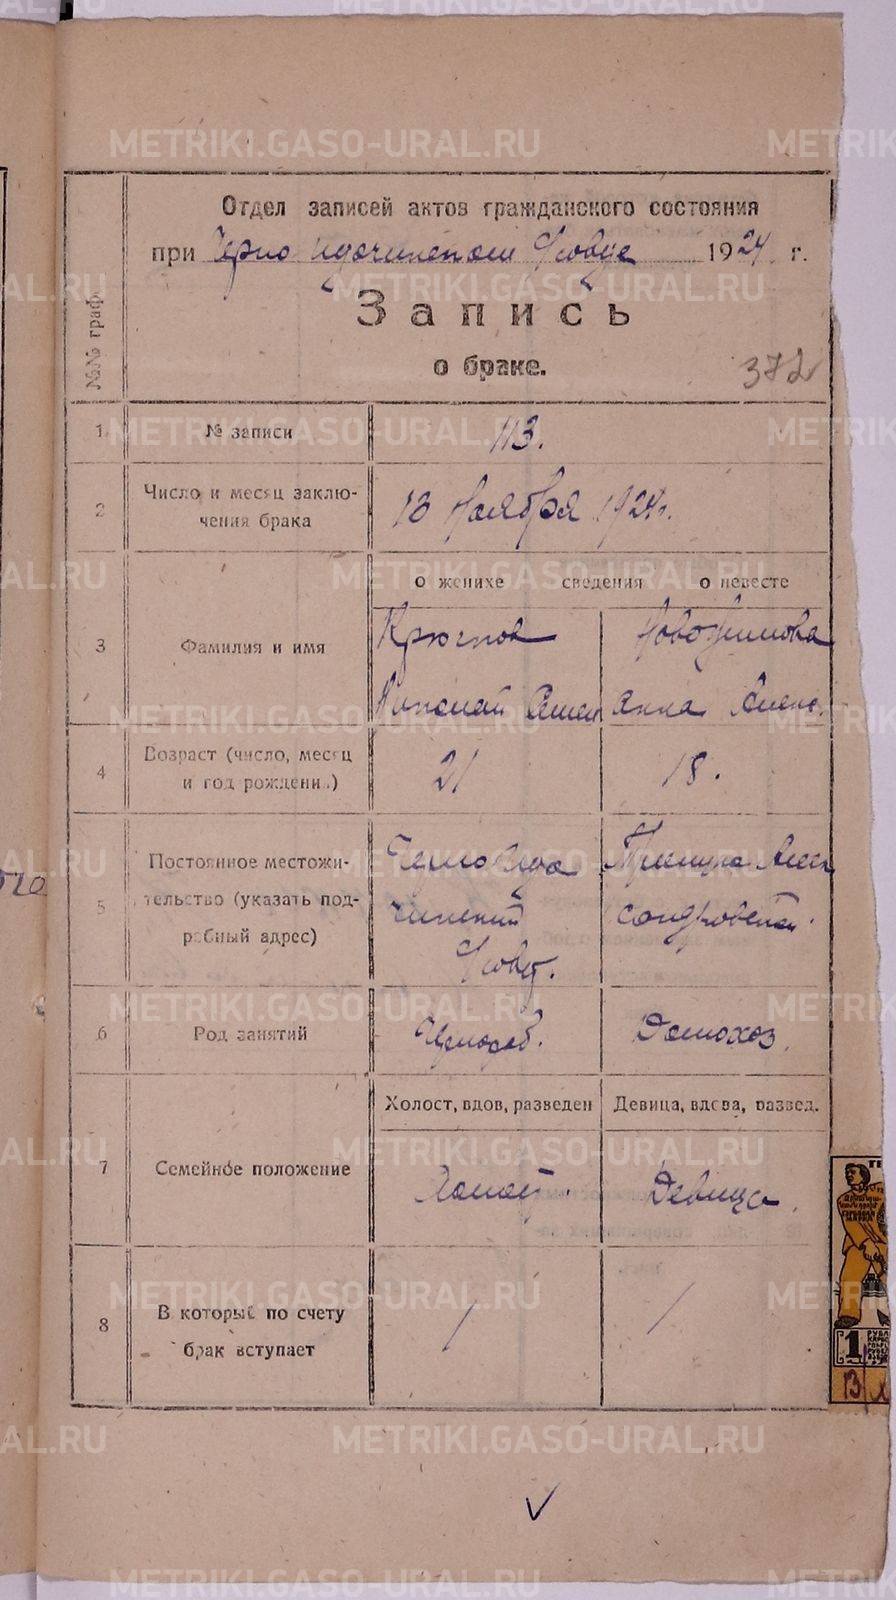 Отдел записей актов гражданского состояния
при Черно 1924 г.
Запись
о браке.
372
№№ граф.
1 № записи 113.
2 Число и месяц заклю-
чения брака
13 Ноября 1924 г.
о женихе сведения о невесте
3 Фамилия и имя
Крючков Новожилова
Николай Семен Анна Алекс.
4 Возраст (число, месяц
и год рождени.)
21 18.
5 Постоянное местожи-
тельство (указать под-
робный адрес)
сандровской.
6 Род занятий
Чернораб. Домохоз.
Холост, вдов, разведен Девица, вдова, развед.
7 Семейное положение
Холост. Девица.
8 В который по счету
брак вступает
1 1
1
13
METRIKI.GASO-URAL.RU